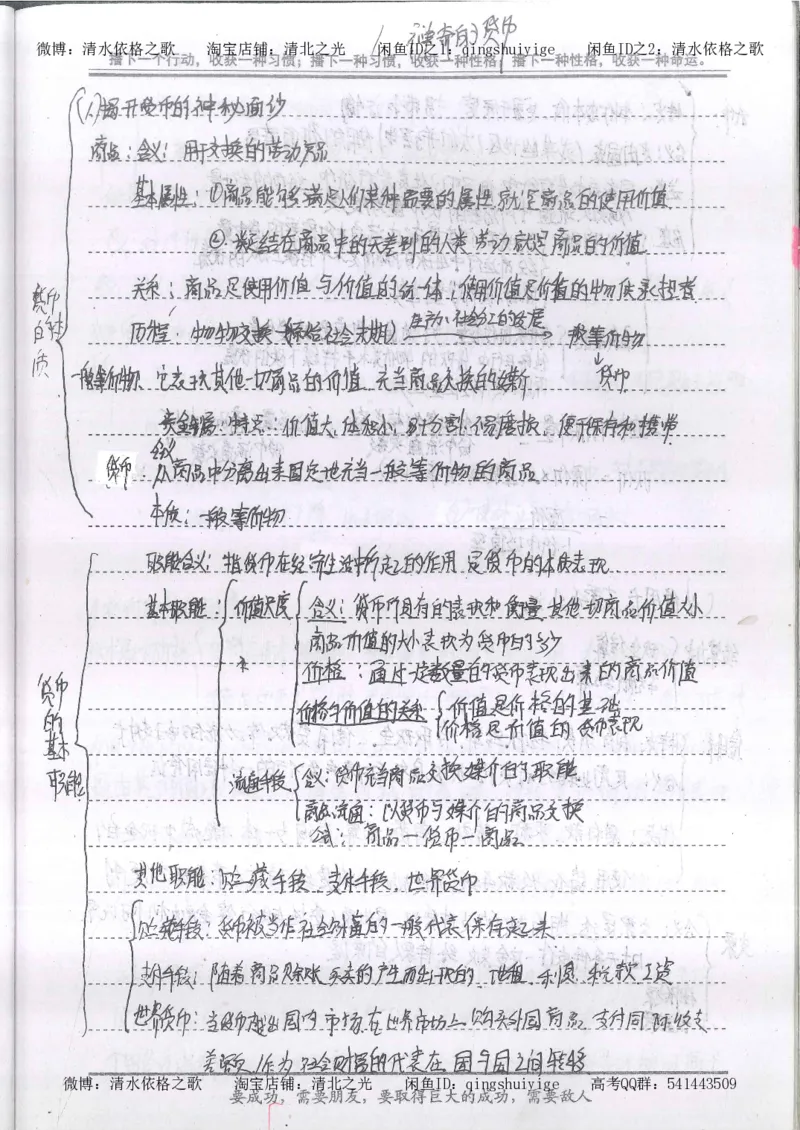 1 神奇的货币
微博：清水依格之歌 淘宝店铺：清北之光 闲鱼ID之1：qingshuiyige 闲鱼ID之2：清水依格之歌
播下一个行动，收获一种习惯；播下一种习惯，收获一种性格；播下一种性格，收获一种命运。
(1)揭开货币的神秘面纱
商品：含义：用于交换的劳动产品
基本属性：①商品能够满足人们某种需要的属性就是商品的使用价值
②凝结在商品中的无差别的人类劳动就是商品的价值
关系：商品是使用价值与价值的统一体；使用价值是价值的物质承担者
货币的本质
历程：物物交换（原始社会末期） 生产力、社会分工的发展 一般等价物
一般等价物：它表现其他一切商品的价值，充当商品交换的媒介 货币
贵金属：特点：价值大，体积小，易于分割，不易磨损，便于保存和携带
含义
货币 从商品中分离出来固定地充当一般等价物的商品
本质：一般等价物
职能含义：指货币在经济生活中所起的作用，是货币的本质表现
基本职能：价值尺度 含义：货币所具有的表现和衡量其他一切商品价值大小
商品价值的大小表现为货币的多少
价格：通过一定数量的货币表现出来的商品价值
价格与价值的关系 价值是价格的基础
价格是价值的货币表现
货币的基本职能
流通手段 含义：货币充当商品交换媒介的职能
商品流通：以货币为媒介的商品交换
公式：商品—货币—商品
其他职能：贮藏手段，支付手段，世界货币
贮藏手段：货币被当作社会财富的一般代表保存起来
支付手段：随着商品赊账买卖的产生而出现的，地租、利息、税款、工资
世界货币：当货币越出国内市场，在世界市场上购买外国商品，支付国际收支
差额，作为社会财富的代表在国与国之间转移
微博：清水依格之歌 淘宝店铺：清北之光 闲鱼ID：qingshuiyige 高考QQ群：541443509
要成功，需要朋友，要取得巨大的成功，需要敌人